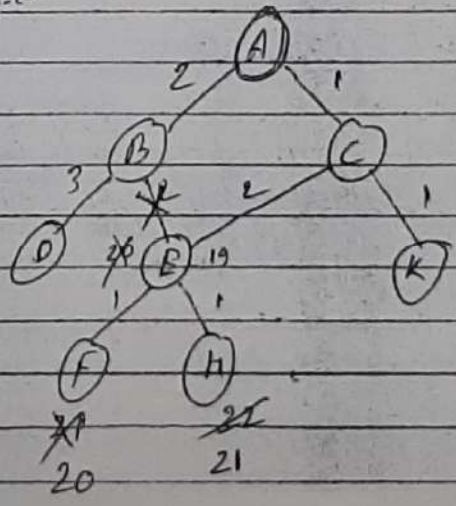 A
2 1
B C
3 2 2 1
D 20 E 19 K
1 1
F H
21 22
20 21